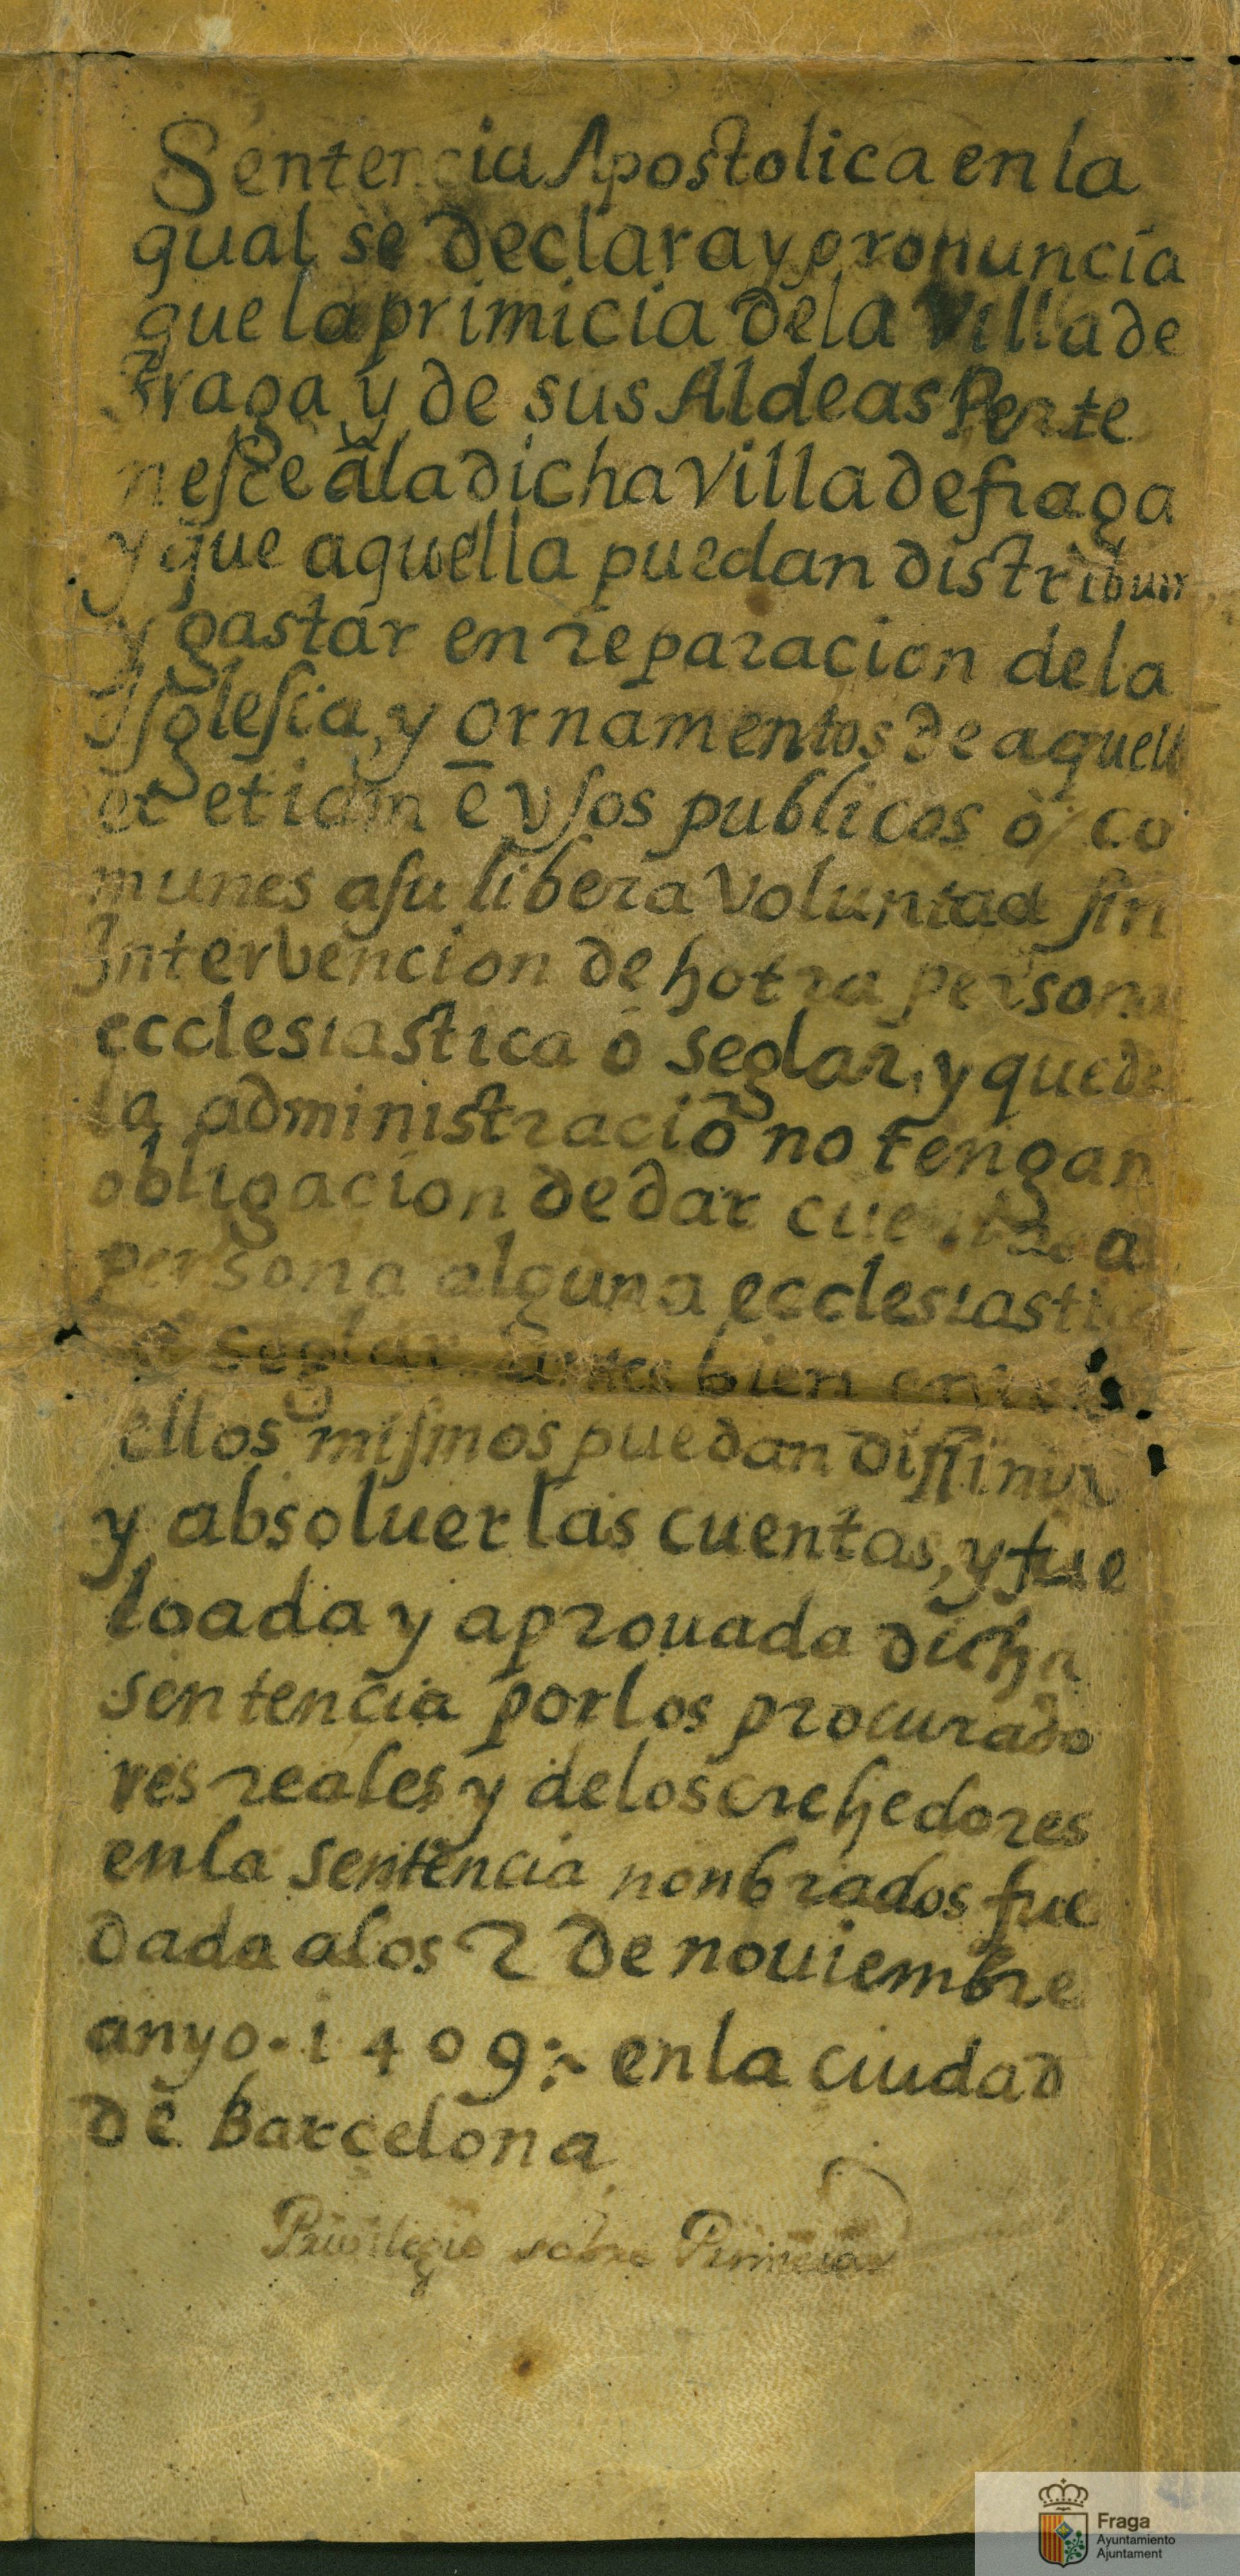 Sentencia Apostolica en la
qual se declara y pronuncia
que la primicia dela Villa de
fraga y de sus Aldeas Perte
nesçe âla dicha Villa de fraga
y que aquella puedan distribuir
y gastar en reparacion de la
Isglesia, y ornamentos de aquell
et etiam ē vsos publicos ò co
munes asu libera Voluntad sin
Intervencion de hotra persona
ecclesiastica ó seglar, y que de
la administraciō no tengan
obligacion de dar cuenta a
persona alguna ecclesiastica
seglar antes bien
ellos mismos puedan diffinir
y absoluer las cuentas, y fue
loada y aprouada dicha
sentencia por los procurado
res reales y delos crehedores
enla sentencia nonbrados fue
dada alos 2 de nouiembre
anyo. 1409 :~ enla ciudad
de Barçelona
Privilegio sobre Primicias
Fraga
Ayuntamiento
Ajuntament